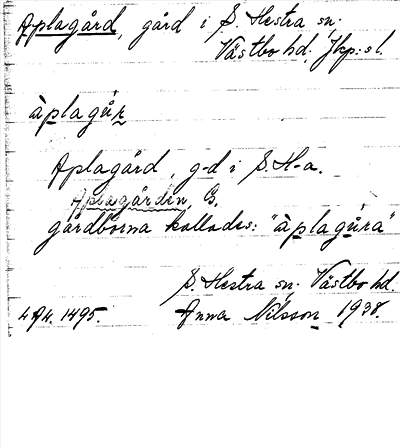 Aplagård, gård i S. Hestra sn.
Västbo hd. Jkp:s l.
àplagů̀r
Aplagård, g-d i S. H-a.
Aplagården, G.
gårdborna kallades: "àplagůra"
S. Hestra sn. Västbo hd.
Anna Nilsson 1938.